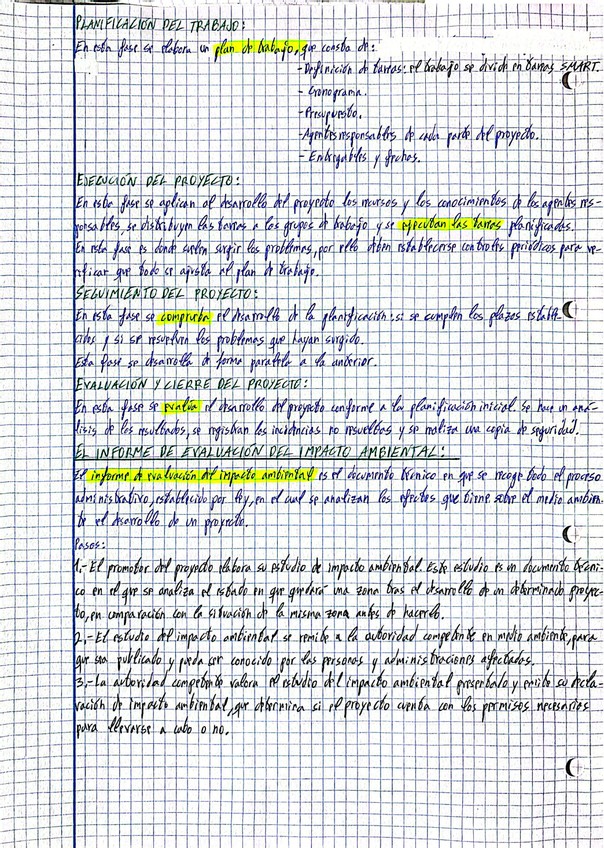 PLANIFICACIÓN DEL TRABAJO:
En esta fase se elabora un plan de trabajo, que consta de:
-Definición de tareas: el trabajo se divide en tareas SMART.
- Cronograma.
- Presupuesto.
-Agentes responsables de cada parte del proyecto.
- Entregables y fechas.
EJECUCIÓN DEL PROYECTO:
En esta fase se aplican al desarrollo del proyecto los recursos y los conocimientos de los agentes res-
ponsables, se distribuyen las tareas a los grupos de trabajo y se ejecutan las tareas planificadas.
En esta fase es donde suelen surgir los problemas, por ello deben establecerse controles periódicos para ve-
rificar que todo se ajusta al plan de trabajo.
SEGUIMIENTO DEL PROYECTO:
En esta fase se comprueba el desarrollo de la planificación: si se cumplen los plazos estable-
cidos y si se resuelven los problemas que hayan surgido.
Esta fase se desarrolla de forma paralela a la anterior.
EVALUACIÓN Y CIERRE DEL PROYECTO:
En esta fase se evalúa el desarrollo del proyecto conforme a la planificación inicial. Se hace un aná-
lisis de los resultados, se registran las incidencias no resueltas y se realiza una copia de seguridad.
EL INFORME DE EVALUACIÓN DEL IMPACTO AMBIENTAL:
El informe de evaluación del impacto ambiental es el documento técnico en que se recoge todo el proceso
administrativo, establecido por ley, en el cual se analizan los efectos que tiene sobre el medio ambien-
te el desarrollo de un proyecto.
Pasos:
1.- El promotor del proyecto elabora su estudio de impacto ambiental. Este estudio es un documento técni-
co en el que se analiza el estado en que quedará una zona tras el desarrollo de un determinado proyec-
to, en comparación con la situación de la misma zona antes de hacerlo.
2.- El estudio del impacto ambiental se remite a la autoridad competente en medio ambiente, para
que sea publicado y pueda ser conocido por las personas y administraciones afectadas.
3.- La autoridad competente valora el estudio del impacto ambiental presentado y emite su decla-
ración de impacto ambiental, que determina si el proyecto cuenta con los permisos necesarios
para llevarse a cabo o no.